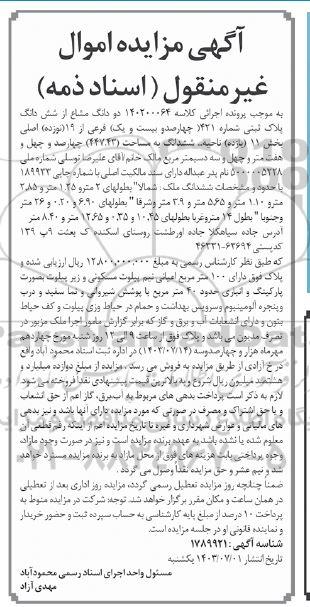 آگهی مزایده اموال
غیر منقول (اسناد ذمه)
به موجب پرونده اجرائی کلاسه ۱۴۰۲۰۰۰۶۴ دو دانگ مشاع از شش دانگ
پلاک ثبتی شماره ۴۲۱( چهارصدو بیست و یک) فرعی از ۱۹(نوزده) اصلی
بخش ۱۱ (یازده) ناحیه.. ششدانگ به مساحت (۴۴۷.۴۳) چهارصد و چهل و
هفت متر و چهل و سه دسیمتر مربع مالک خانم/آقای علیرضا توسلی شماره ملی
۵۰۰۰۰۰۵۳۲۸ نام پدر عبداله دارای سند مالکیت اصلی با شماره چاپی ۱۸۹۹۳۳
با حدود و مشخصات ششدانگ ملک : شمالا" بطولهای ۲ متر و ۱.۳۵ متر و ۲.۸۵
متر و ۱.۱۰ متر و ۵.۶۵ متر و ۳.۹ متر وشرقا " بطولهای ۶.۹۰ و ۰.۲۰ و ۲۶ متر
وجنوبا " بطول ۱۴ متروغربا بطولهای ۱۰.۴۵ و ۰.۳۵ و ۱۲.۶۵ متر و ۸.۴۰ متر
آدرس جاده سیاهکلا جاده اورطشت روستای اسکنده ک بعثت ۹پ ۱۳۹
کدپستی ۶۳۶۹۴-۴۶۳۳۱
که طبق نظر کارشناس رسمی به مبلغ ۱۲،۸۰۰،۰۰۰،۰۰۰ ریال ارزیابی شده و
پلاک فوق دارای ۱۰۰ متر مربع اعیانی نیم پیلوت مسکونی و زیر پیلوت بصورت
پارکینگ و انباری حدود ۴۰ متر مربع با پوشش شیروانی و نما سفید و درب
وپنجره آلومینیوم وسرویس بهداشت و حمام در حیاط وزی پیلوت و کف حیاط
بتون و دارای انشعابات آب و برق و گاز که برابر گزارش مامور اجرا ملک مزبور در
تصرف مدیون می باشد و پلاک فوق از ساعت ۹ الی ۱۲ روز شنبه مورخ چهاردهم
مهرماه هزار و چهارصدوسه (۱۴۰۳/۰۷/۱۴) در اداره ثبت اسناد محمود آباد واقع
در خ آزادی از طریق مزایده به فروش می رسد . مزایده از مبلغ دوازده میلیارد و
هشتصد میلیون ریال شروع و به بالاترین قیمت پیشنهادی نقدا فروخته می شود
لازم به ذکر است پرداخت بدهی های مربوط به آب،برق، گاز اعم از حق انشعاب
و یا حق اشتراک و مصرف در صورتی که مورد مزایده دارای آنها باشد و نیز بدهی
های مالیاتی و عوارض شهرداری و غیره تا تاریخ مزایده اعم از اینکه رقم قطعی آن
معلوم شده یا نشده باشد به عهده برنده مزایده است و نیز در صورت وجود مازاد،
وجوه پرداختی بابت هزینه های فوق از محل مازاد به برنده مزایده مسترد خواهد
شد و نیم عشر و حق مزایده نقدا وصول می گردد .
ضمنا چنانچه روز مزایده تعطیل رسمی گردد، مزایده روز اداری بعد از تعطیلی
در همان ساعت و مکان مقرر برگزار خواهد شد. توجه: شرکت در مزایده منوط به
پرداخت ۱۰ درصد از مبلغ پایه کارشناسی به حساب سپرده ثبت و حضور خریدار
و نماینده قانونی او در جلسه مزایده است.
شناسه آگهی: ۱۷۸۹۹۲۱
تاریخ انتشار ۱۴۰۳/۰۷/۰۱ یکشنبه
مسئول واحد اجرای اسناد رسمی محمودآباد
مهدی آزاد